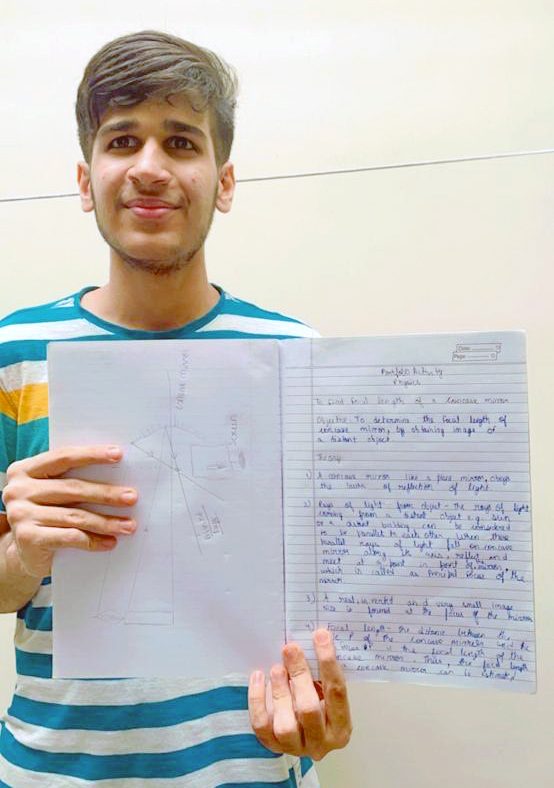 Concave mirror
Screen
Date:
Page:
Portfolio Activity
Physics
To find focal length of a concave mirror
Objective - To determine the focal length of
concave mirror, by obtaining image of
a distant object
Theory
1) A concave mirror like a plane mirror, obeys
the laws of reflection of light.
2) Rays of light from object - the rays of light
coming from a distant object e.g. Sun
or a distant building can be considered
to be parallel to each other. When these
parallel rays of light fall on concave
mirror along its axis, reflect and
meet at a point in front of the mirror
which is called as Principal focus of the
mirror
3) A real, inverted and very small image
size is formed at the focus of the mirror
4) Focal length - the distance between the
P of the concave mirror and the
focus F is the focal length of the
concave mirror. Thus, the focal length
concave mirror can be estimated